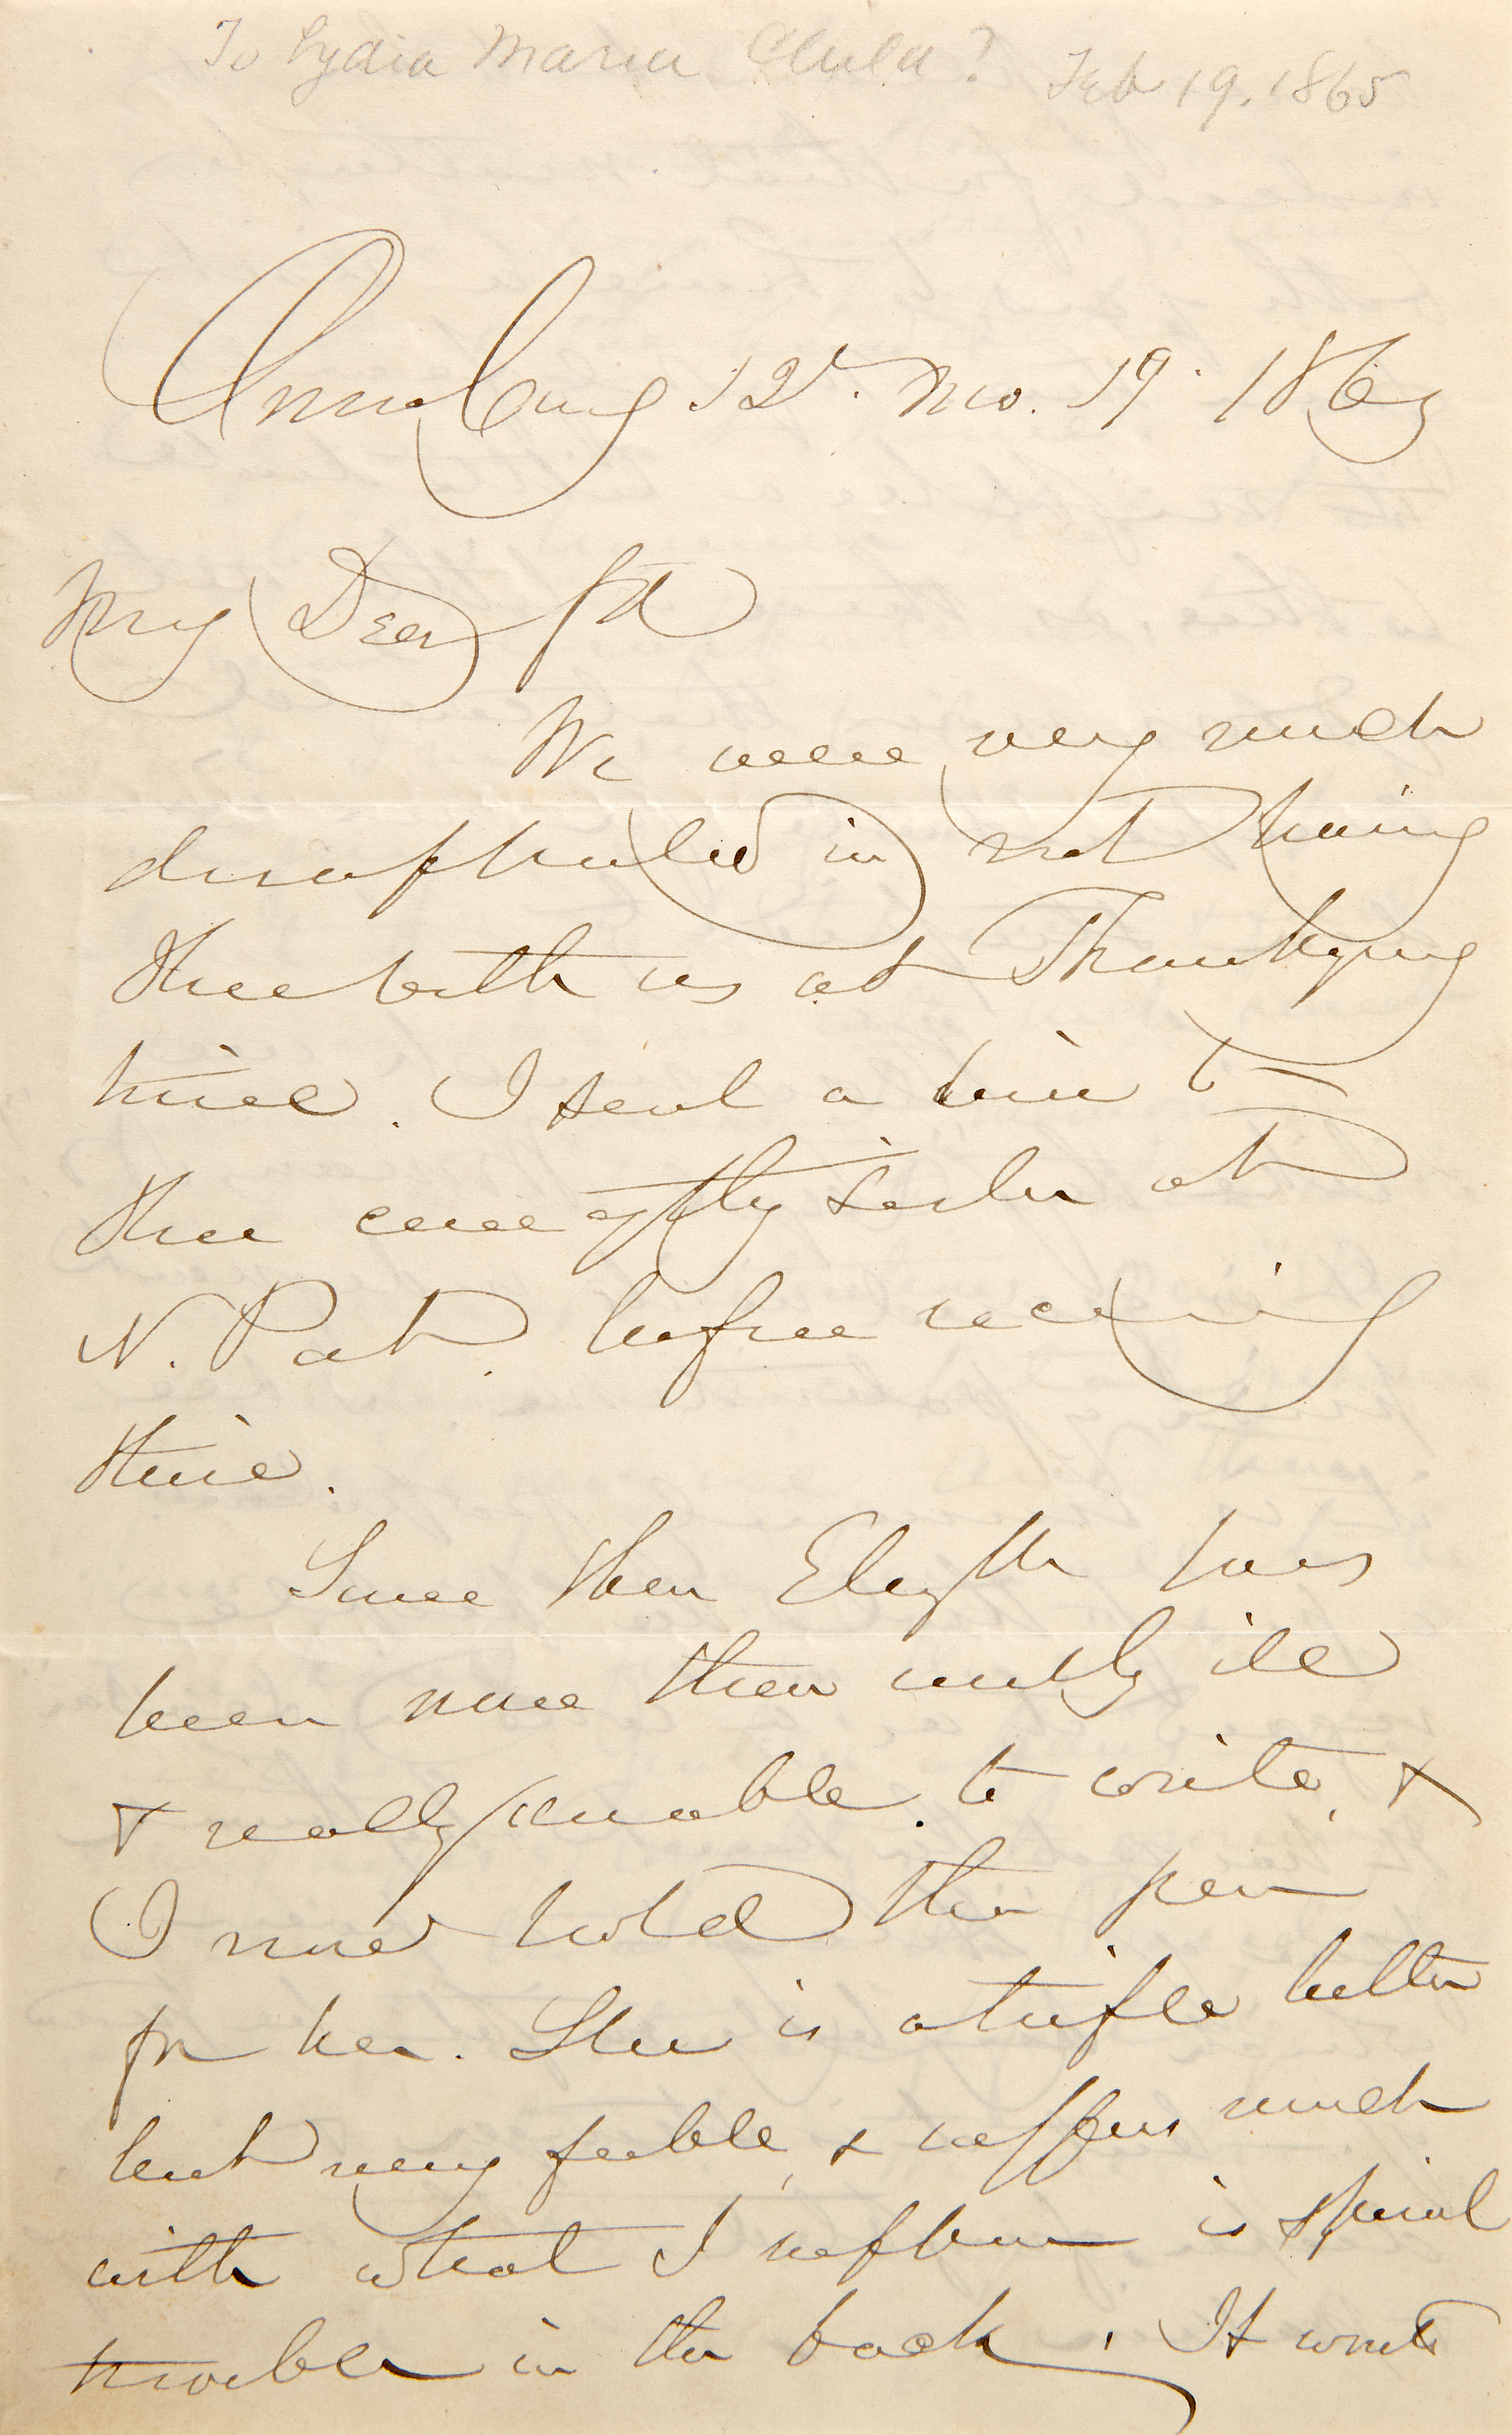 To Lydia Maria Child? Feb 19. 1865
Amesbury 12th Mo. 19 1863
My Dear frd
We were very much
disappointed in not having
thee with us at Thanksgiving
time. I sent a line to
thee care of thy sister at
N. Pat. before receiving
thine.
Since then Elizth has
been more than usually ill
& really unable to write, &
I must hold the pen
for her. She is a trifle better
but very feeble, & suffers much
with what I suppose is spinal
trouble in the back. It